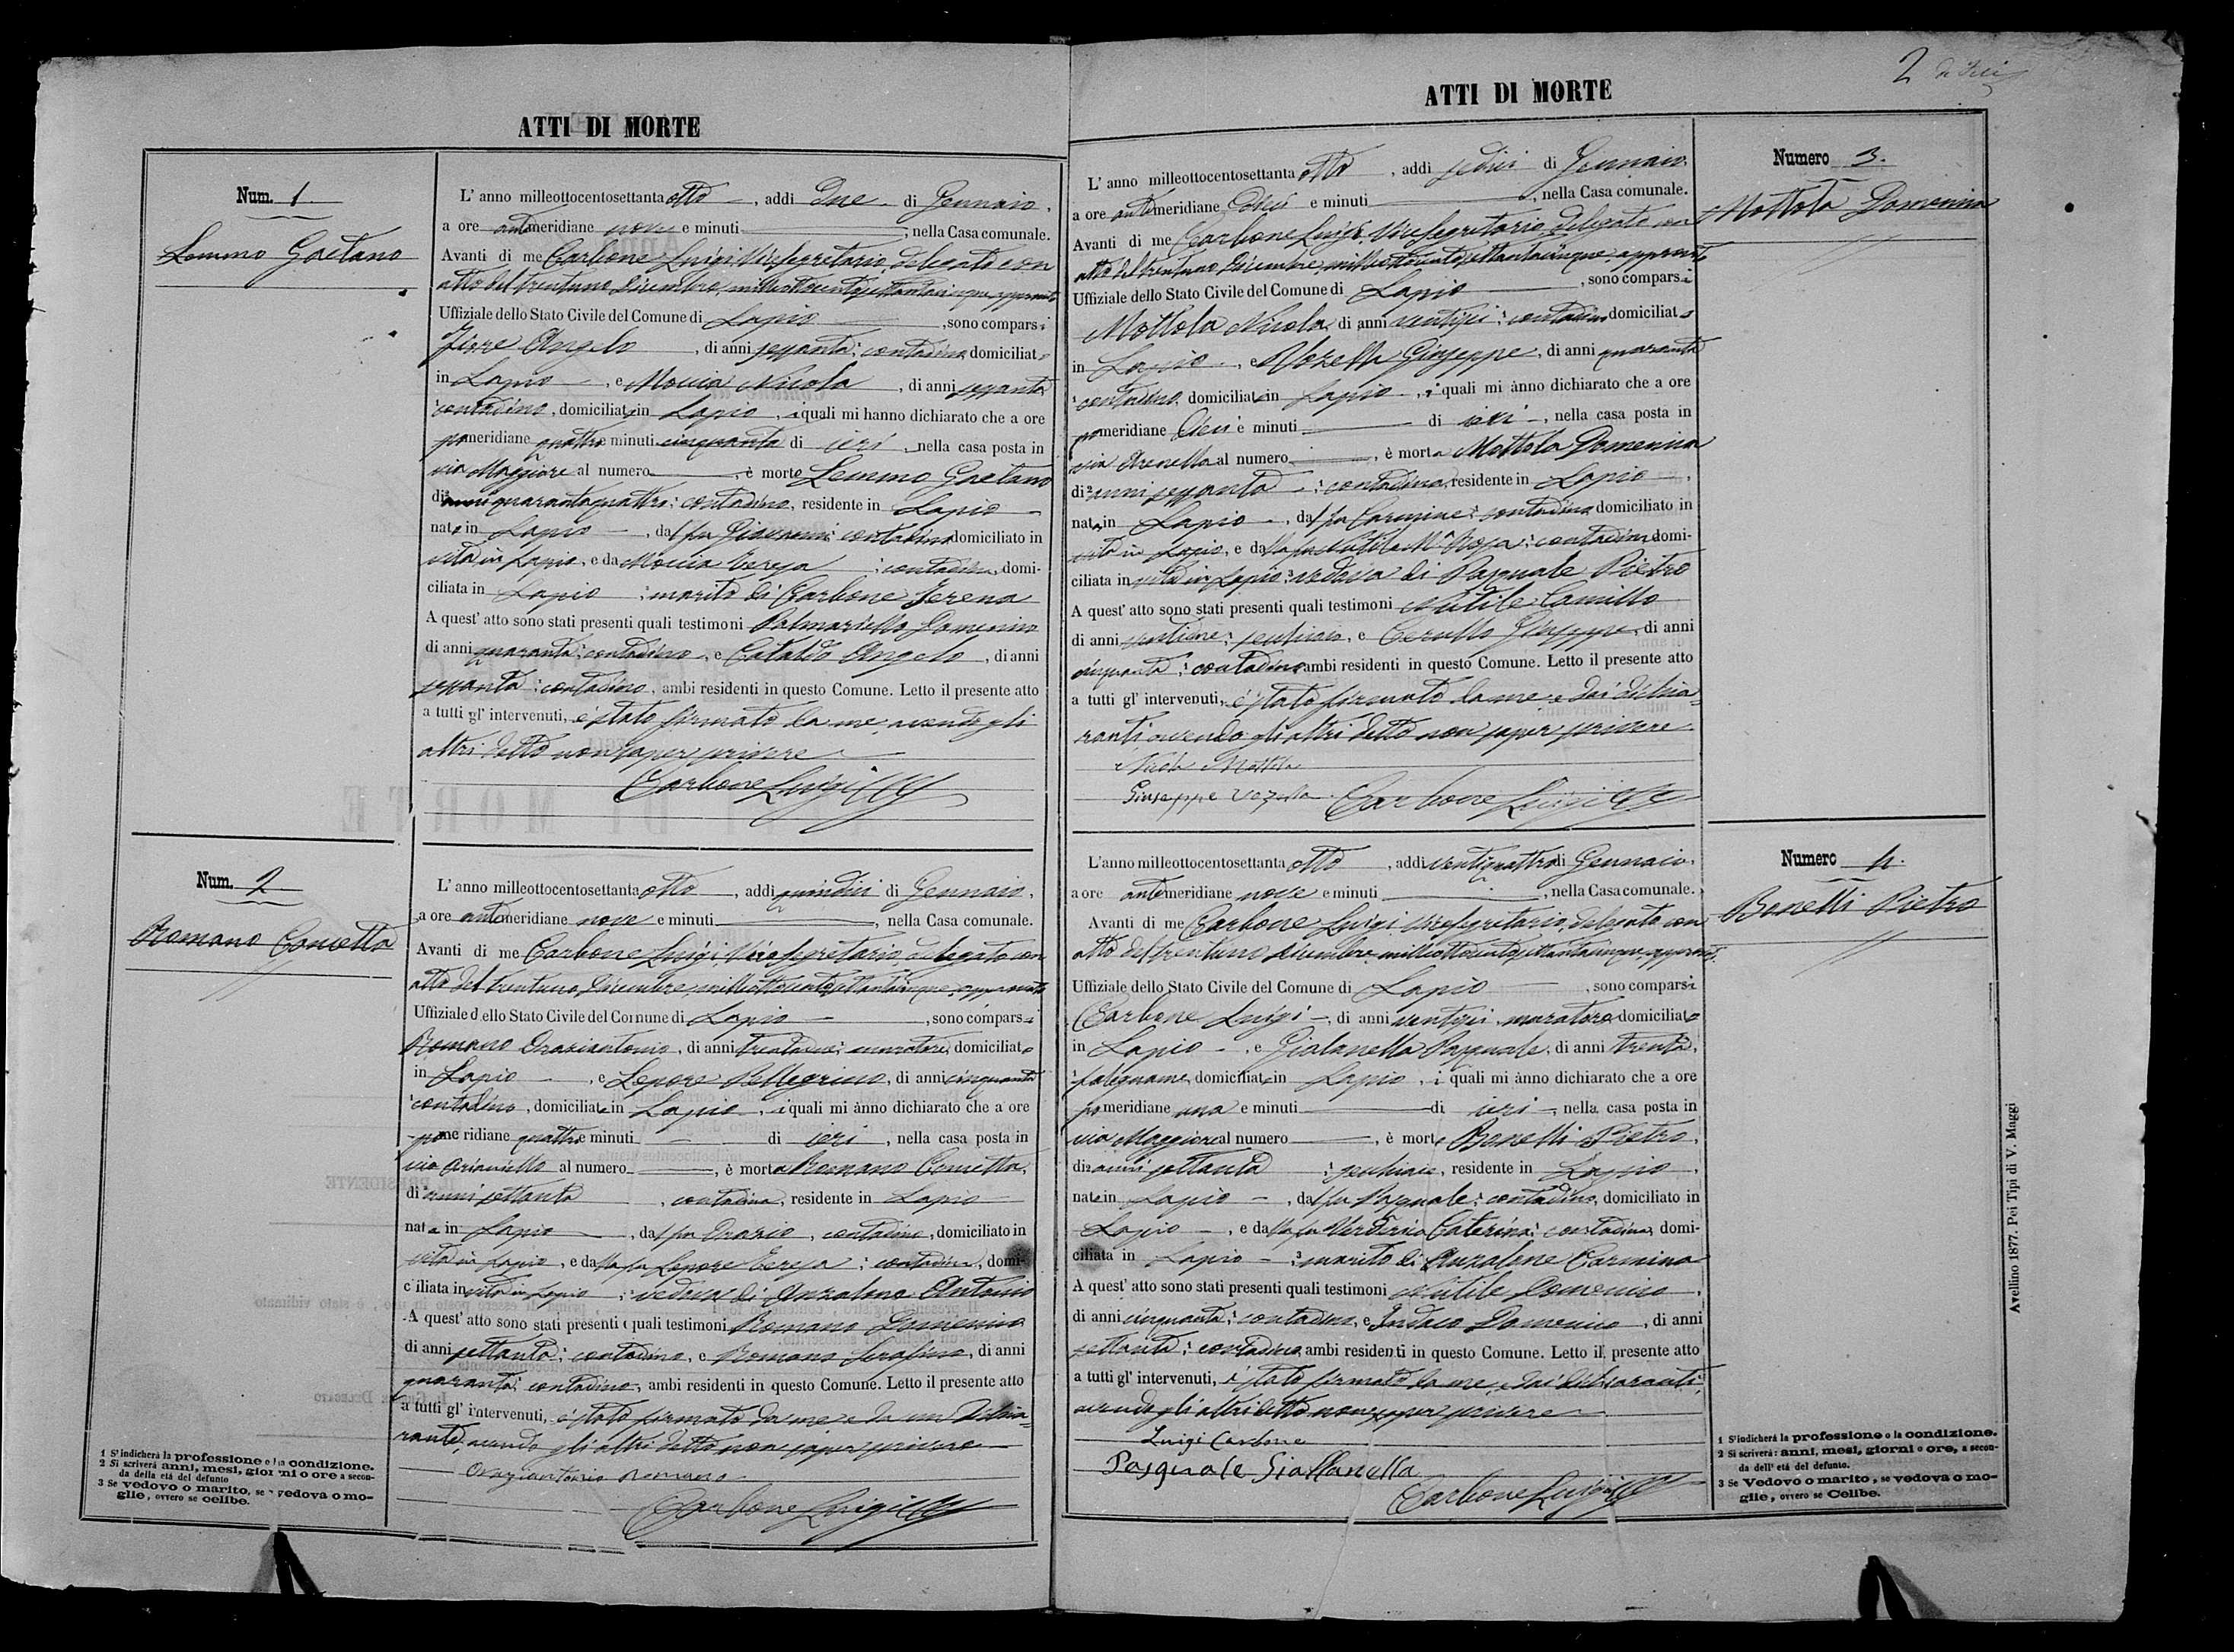 ATTI DI MORTE
Num. 1
Lemmo Gaetano
L' anno milleottocentosettanta otto, addi due di Gennaio,
a ore antimeridiane nove e minuti, nella Casa comunale.
Avanti di me Carbone Luigi, Vicesegretario, delegato con
atto del trentuno Dicembre milleottocentosettantacinque, approvato
Uffiziale dello Stato Civile del Comune di Lapio, sono comparsi
Fiore Angelo, di anni sessanta, contadino domiciliato
in Lapio, e Moccia Nicola, di anni sessanta
contadino, domiciliato in Lapio, i quali mi hanno dichiarato che a ore
pomeridiane quattro e minuti cinquanta di ieri, nella casa posta in
via Maggiore al numero, è morto Lemmo Gaetano
di anni quarantaquattro, contadino, residente in Lapio
nato in Lapio, dal fu Giovanni, contadino domiciliato in
vita in Lapio, e da Moccia Teresa, contadina, domi-
ciliata in Lapio, marito di Carbone Serena
A quest' atto sono stati presenti quali testimoni Palmariello Domenico
di anni quaranta, contadino, e Cataldo Angelo, di anni
sessanta, contadino, ambi residenti in questo Comune. Letto il presente atto
a tutti gl' intervenuti, è stato firmato da me, avendo gli
altri detto non saper scrivere
Carbone Luigi
Num. 2
Romano Concetta
L' anno milleottocentosettanta otto, addi quindici di Gennaio,
a ore antimeridiane nove e minuti, nella Casa comunale.
Avanti di me Carbone Luigi, Vicesegretario, delegato con
atto del trentuno Dicembre milleottocentosettantacinque, approvato
Uffiziale dello Stato Civile del Comune di Lapio, sono comparsi
Romano Oraziantonio, di anni trentadue, muratore, domiciliato
in Lapio, e Lepore Pellegrino, di anni cinquanta
contadino, domiciliato in Lapio, i quali mi ànno dichiarato che a ore
pomeridiane quattro e minuti di ieri, nella casa posta in
via Arianiello al numero, è morta Romano Concetta,
di anni settanta, contadina, residente in Lapio
nata in Lapio, dal fu Orazio, contadino, domiciliato in
vita in Lapio, e dalla fu Lepore Teresa, contadina, domi-
ciliata in vita in Lapio, vedova di Anzalone Antonio
A quest' atto sono stati presenti quali testimoni Romano Domenico
di anni settanta, contadino, e Romano Serafino, di anni
quaranta, contadino, ambi residenti in questo Comune. Letto il presente atto
a tutti gl' intervenuti, è stato firmato da me e da un dichia-
rante, avendo gli altri detto non saper scrivere
Oraziantonio Romano
Carbone Luigi
1 S'indicherà la professione o la condizione.
2 Si scriverà anni, mesi, giorni o ore a secon-
da della età del defunto
3 Se Vedovo o marito, se vedova o mo-
glie, ovvero se celibe.
2
ATTI DI MORTE
Numero 3.
Mottola Domenica
L' anno milleottocentosettanta otto, addi sedici di Gennaio,
a ore antimeridiane dieci e minuti, nella Casa comunale.
Avanti di me Carbone Luigi, Vicesegretario, delegato con
atto del trentuno Dicembre milleottocentosettantacinque, approvato
Uffiziale dello Stato Civile del Comune di Lapio, sono comparsi
Mottola Nicola, di anni ventisei, contadino domiciliato
in Lapio, e Vozella Giuseppe, di anni quaranta
contadino, domiciliato in Lapio, i quali mi ànno dichiarato che a ore
pomeridiane dieci e minuti di ieri, nella casa posta in
via Arenella al numero, è morta Mottola Domenica
di anni sessanta, contadina, residente in Lapio,
nata in Lapio, dal fu Carmine, contadino domiciliato in
vita in Lapio, e dalla fu Nutile Ma Rosa, contadina domi-
ciliata in vita in Lapio, vedova di Pasquale Pietro
A quest' atto sono stati presenti quali testimoni Nutile Camillo
di anni, e Cerullo Giuseppe, di anni
cinquanta, contadino ambi residenti in questo Comune. Letto il presente atto
a tutti gl' intervenuti, è stato firmato da me e dai dichia-
ranti avendo gli altri detto non saper scrivere
Nicola Mottola
Giuseppe Vozella Carbone Luigi
Numero 4.
Bonelli Pietro
L'anno milleottocentosettanta otto, addi ventiquattro di Gennaio,
a ore antimeridiane nove e minuti, nella Casa comunale.
Avanti di me Carbone Luigi Vicesegretario, delegato con
atto del trentuno Dicembre milleottocentosettantacinque, approvato
Uffiziale dello Stato Civile del Comune di Lapio, sono comparsi
Carbone Luigi, di anni ventisei, muratore domiciliato
in Lapio, e Gialanella Pasquale, di anni trenta,
falegname, domiciliato in Lapio, i quali mi ànno dichiarato che a ore
pomeridiane una e minuti di ieri, nella casa posta in
via Maggiore al numero, è morto Bonelli Pietro,
di anni settanta, residente in Lapio,
nato in Lapio, dal fu Pasquale, contadino, domiciliato in
Lapio, e dalla fu Verderico Caterina, contadina, domi-
ciliata in Lapio, marito di Anzalone Carmina
A quest' atto sono stati presenti quali testimoni Nutile Domenico,
di anni cinquanta, contadino, e Indaco Domenico, di anni
settanta, contadino ambi residenti in questo Comune. Letto il presente atto
a tutti gl' intervenuti, è stato firmato da me e dai dichiaranti,
avendo gli altri detto non saper scrivere
Luigi Carbone
Pasquale Giallanella
Carbone Luigi
1 S'indicherà la professione o la condizione.
2 Si scriverà: anni, mesi, giorni o ore, a secon-
da dell' età del defunto.
3 Se Vedovo o marito, se vedova o mo-
glie, ovvero se Celibe.
Avellino 1877. Pei Tipi di V. Maggi